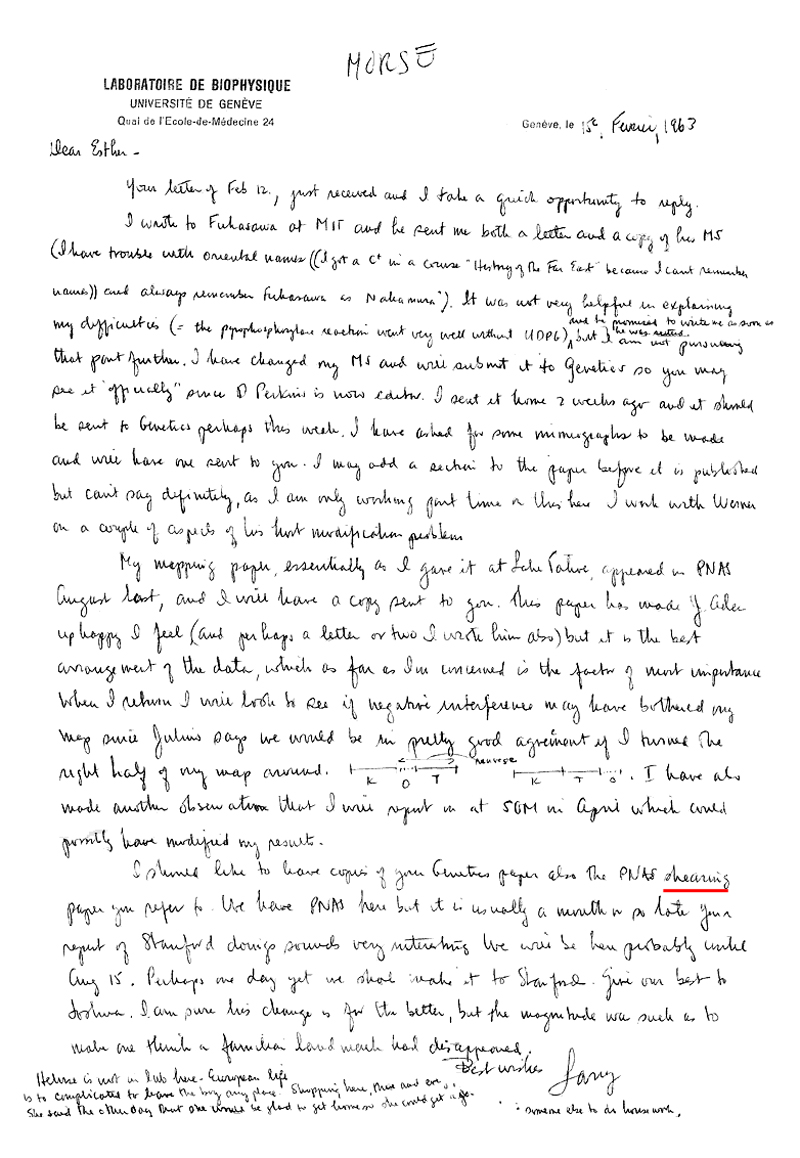 MORSE
LABORATOIRE DE BIOPHYSIQUE
UNIVERSITÉ DE GENÈVE
Quai de l'Ecole-de-Médecine 24
Genève, le 15e Fevrier, 1963
Dear Esther -
Your letter of Feb 12., just received and I take a quick opportunity to reply.
I wrote to Fukasawa at MIT and he sent me both a letter and a copy of his MS
(I have trouble with oriental names ((I got a C+ in a course "History of the Far East" because I cant remember
names)) and always remember Fukasawa as Nakamura"). It was not very helpful in explaining
and he promised to write me as soon as
my difficulties (= the pyrophosphorylase reaction went very well without UDPG), but I am not pursuing
he was
that part further. I have changed my MS and will submit it to Genetics so you may
see it "officially" since D Perkins is now editor. I sent it home 2 weeks ago and it should
be sent to Genetics perhaps this week. I have asked for some mimeographs to be made
and will have one sent to you. I may add a section to the paper before it is published
but cant say definitely, as I am only working part time on this here I work with Werner
on a couple of aspects of his host modification problem
My mapping paper, essentially as I gave it at appeared in PNAS
August last, and I will have a copy sent to you. This paper has made J. Adler
unhappy I feel (and perhaps a letter or two I wrote him also) but it is the best
arrangement of the data, which as far as I'm concerned is the factor of most importance
When I return I will look to see if negative interference may have bothered my
map since Julius says we would be in pretty good agreement if I turned the
right half of my map around. K O T reverse K T O . I have also
made another observation that I will report on at SGM in April which could
possibly have modified my results.
I should like to have copies of your Genetics paper also the PNAS shearing
paper you refer to. We have PNAS here but it is usually a month or so late Your
report of Stanford doings sounds very interesting We will be here probably until
Aug 15. Perhaps one day yet we shall make it to Stanford. Give our best to
Joshua. I am sure his change is for the better, but the magnitude was such as to
make one think a familiar land mark had disappeared.
Best wishes
Larry
Helene is not in lab here - European life
is to complicated to leave the boy any place. Shopping here, there and
She said the other day that one would be glad to get home so she could get a
someone else to do housework.